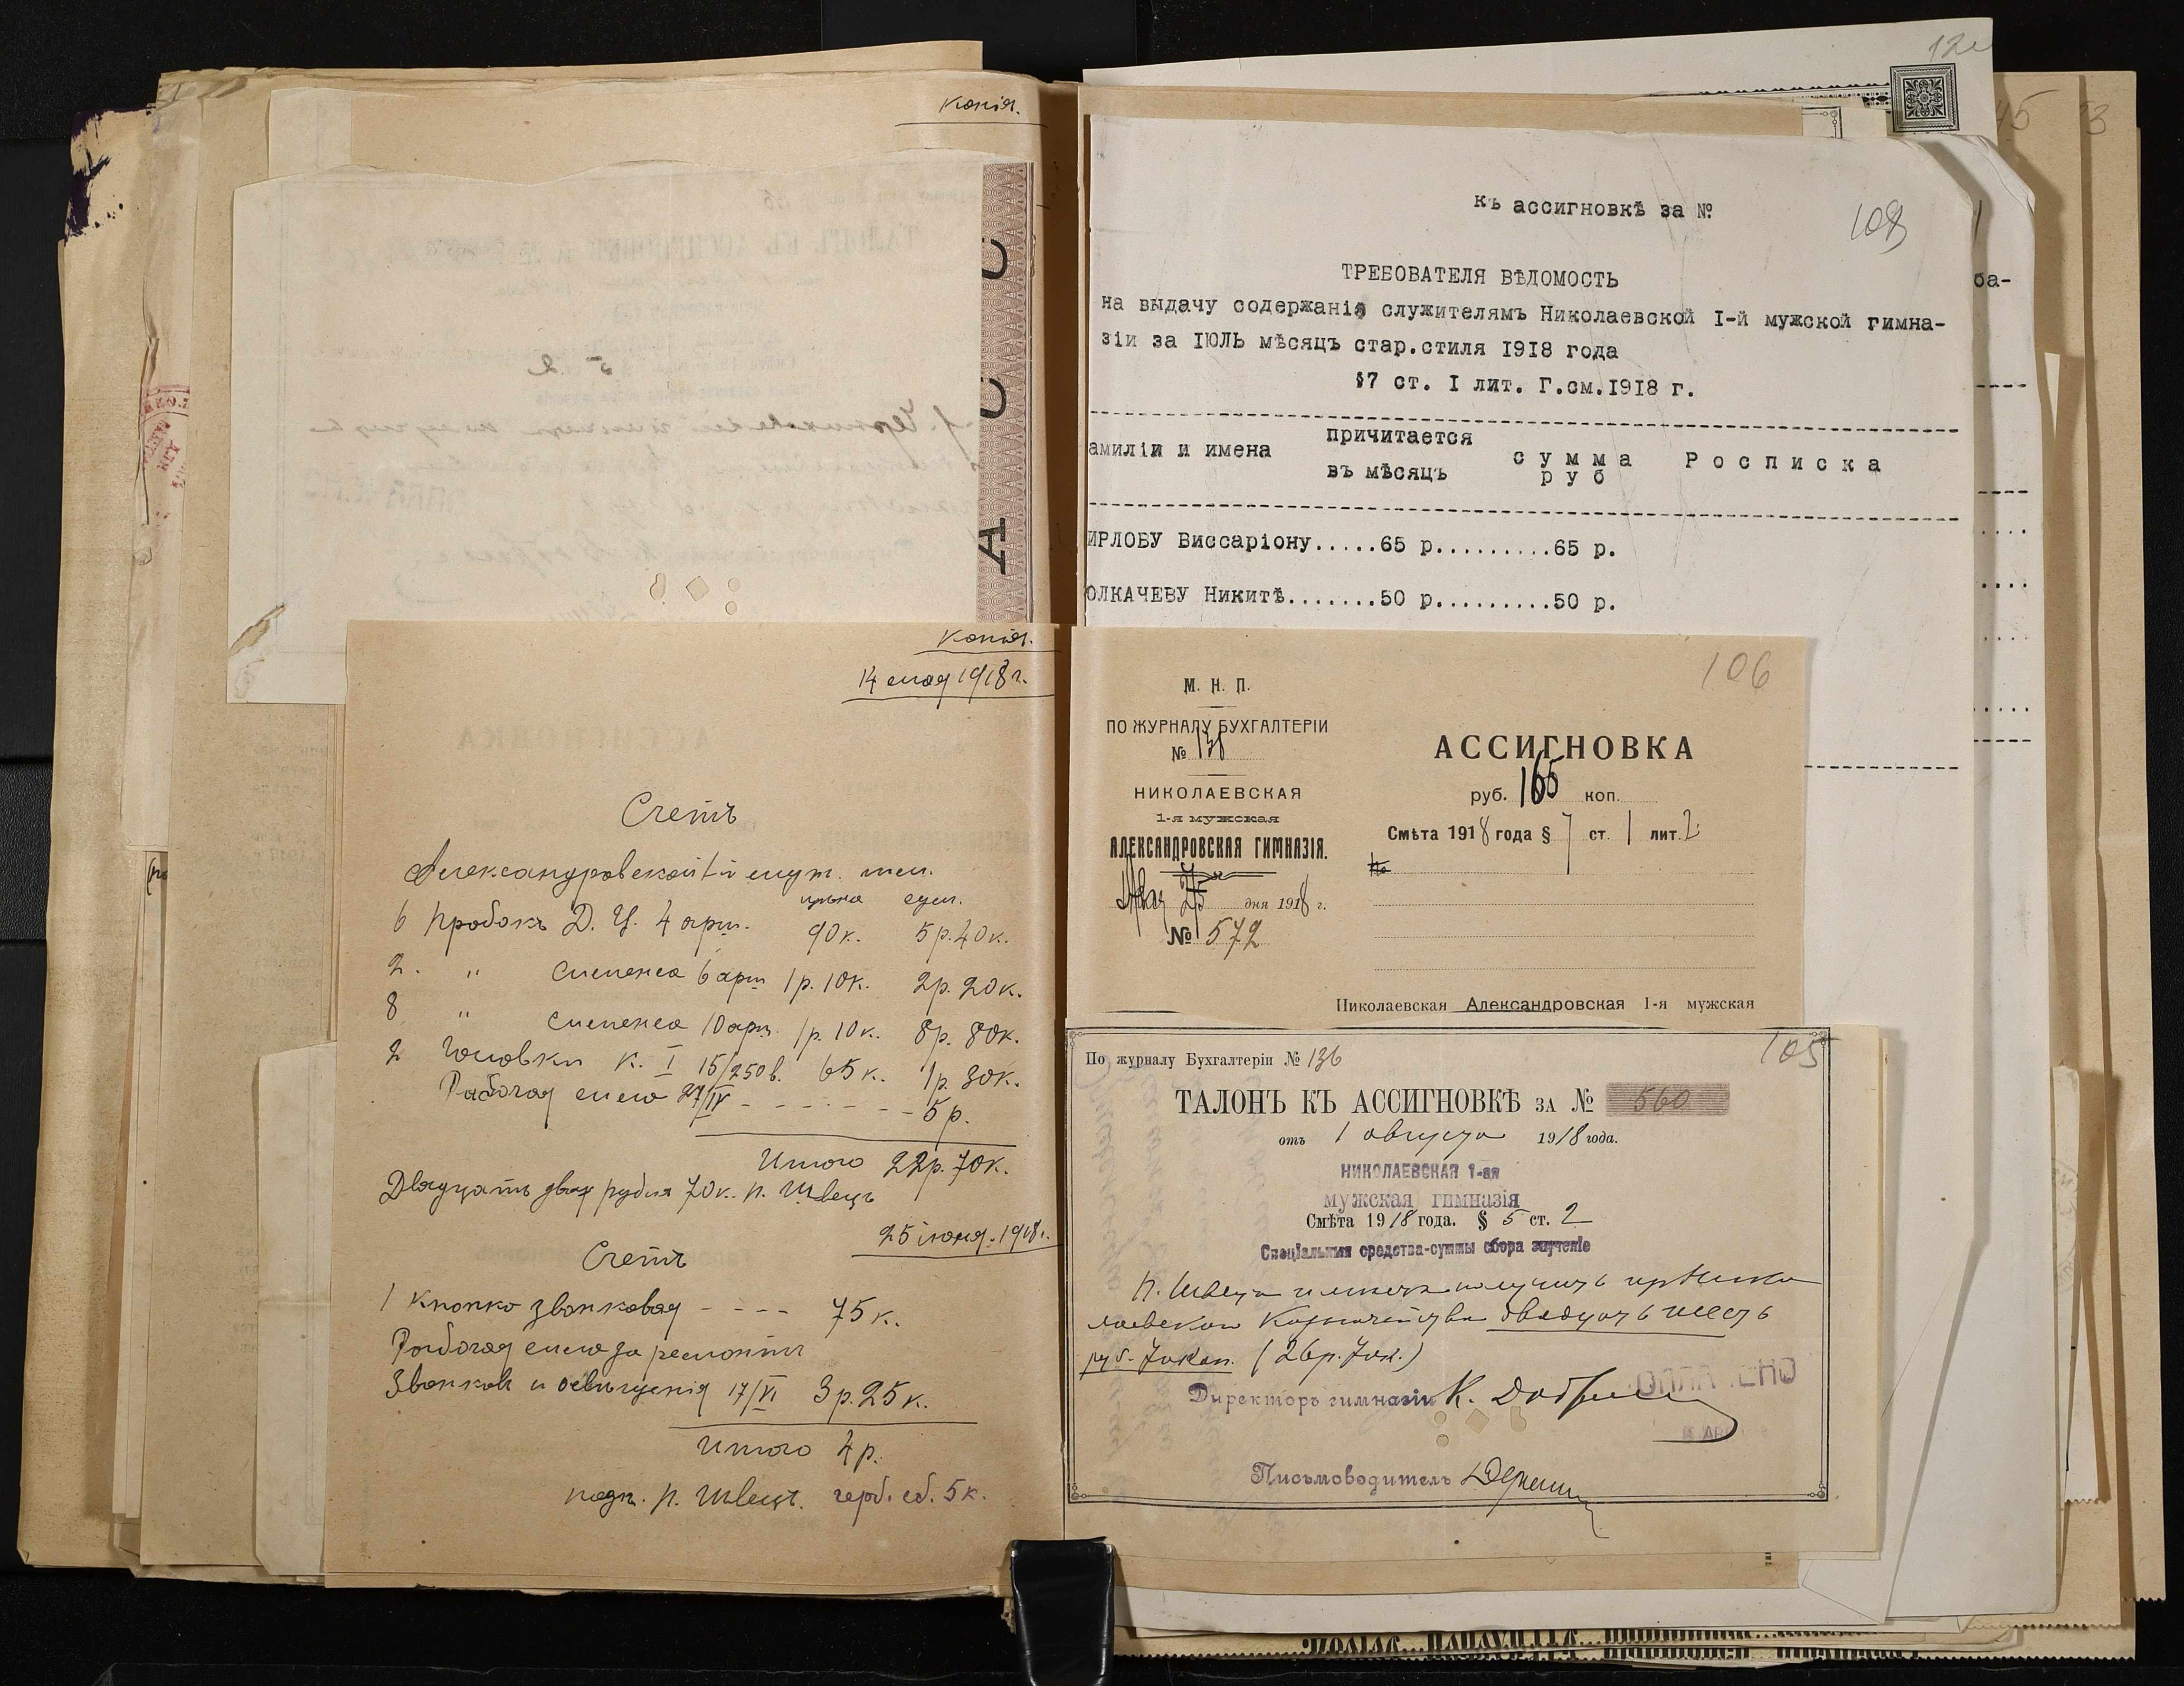 копія.
копія.
14 мая 1918 г.
Счетъ
Александровской 1-й муж. гим.
цѣна сум.
6 пробокъ Д. Ц. 4 арш. 90 к. 5 р. 40 к.
2. " Сименса 6 арш 1 р. 10 к. 2 р. 20 к.
8 " Сименса 10 арш. 1 р. 10 к. 8 р. 80 к.
2 Головки К. I 15/250 в. 65 к. 1 р. 30 к.
Рабочая сила 27/IV - - - - - - 5 р.
Итого 22 р. 70 к.
Двадцать два рубля 70 к. П. Швецъ
25 іюня 1918 г.
Счетъ
1 кнопка звонковая - - - - 75 к.
Рабочая сила за ремонтъ
Звонковъ и освѣщенія 17/VI 3 р. 25 к.
Итого 4 р.
подп. П. Швецъ. герб. сб. 5 к.
120
45
3
къ ассигновкѣ за №
108
ТРЕБОВАТЕЛЯ ВѢДОМОСТЬ
на выдачу содержанія служителямъ Николаевской I-й мужской гимна-
зіи за ІЮЛЬ мѣсяцъ стар.стиля 1918 года
§7 ст. I лит. Г.см.1918 г.
амиліи и имена причитается въ мѣсяцъ сумма руб Росписка
ИРЛОБУ Виссаріону.....65 р.........65 р.
ОЛКАЧЕВУ Никитѣ.......50 р.........50 р.
ба-
106
М. Н. П.
ПО ЖУРНАЛУ БУХГАЛТЕРІИ
№ 138
НИКОЛАЕВСКАЯ
1-я мужская
АЛЕКСАНДРОВСКАЯ ГИМНАЗІЯ.
дня 1918 г.
№ 572
АССИГНОВКА
руб. 165 коп.
Смѣта 1918 года § 7 ст. 1 лит. г
По
Николаевская Александровская 1-я мужская
105
По журналу Бухгалтеріи № 136
ТАЛОНЪ КЪ АССИГНОВКѢ ЗА № 560
отъ 1 августа 1918 года.
НИКОЛАЕВСКАЯ 1-ая
мужская гимназія
Смѣта 1918 года. § 5 ст. 2
Спеціальныя средства-суммы сбора за ученіе
П. Швецъ имѣетъ получить изъ Нико
лаевскаго Казначейства двадцать шесть
руб. 70 коп. (26 р. 70 к.)
Директоръ гимназіи К.
Письмоводитель